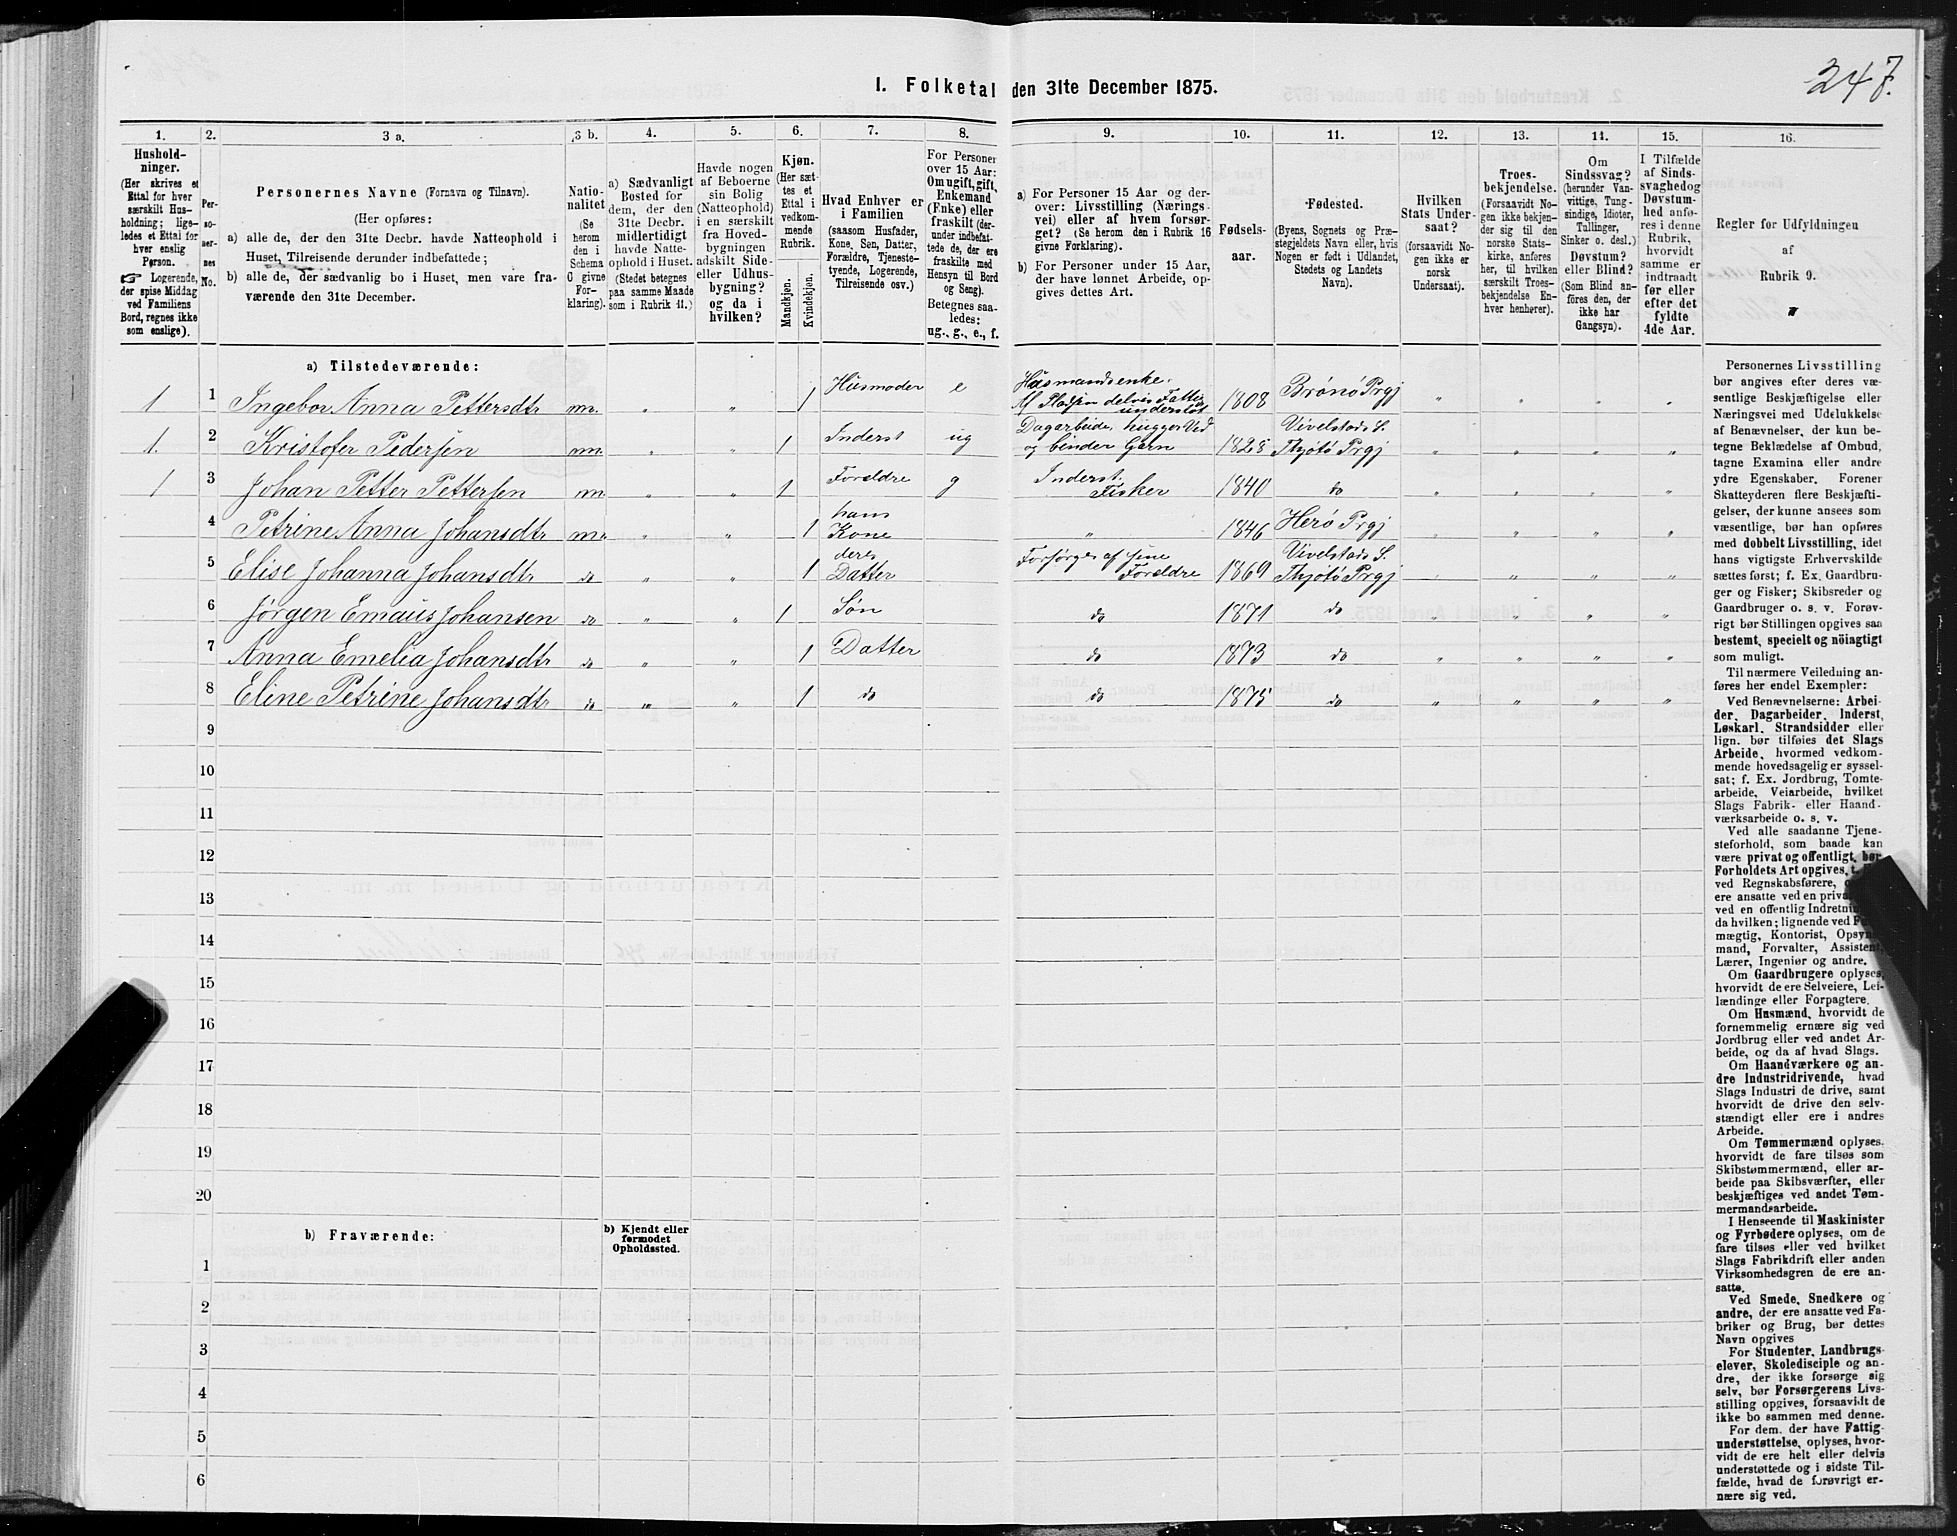 247.
I. Folketal den 31te December 1875.
1. 2. 3 a. 3 b. 4. 5. 6. 7. 8. 9. 10. 11. 12. 13. 14. 15. 16.
Hushold-
ninger.
(Her skrives et
Ettal for hver
særskilt Hus-
holdning; lige-
ledes et Ettal for
hver enslig
Person.
☞ Logerende,
der spise Middag
ved Familiens
Bord, regnes ikke
som enslige).
Per-
so-
ner-
nes
No.
Personernes Navne (Fornavn og Tilnavn).
(Her opføres:
a) alle de, der den 31te Decbr. havde Natteophold i
Huset, Tilreisende derunder indbefattede;
b) alle de, der sædvanlig bo i Huset, men vare fra-
værende den 31te December.
Natio-
nalitet
(Se
herom
den i
Schema
O givne
For-
klaring).
a) Sædvanligt
Bosted for
dem, der den
31te Decbr.
midlertidigt
havde Natte-
ophold i Huset.
(Stedet betegnes
paa samme Maade
som i Rubrik 11.)
Havde nogen
af Beboerne
sin Bolig
(Natteophold)
i en særskilt
fra Hoved-
bygningen
adskilt Side-
eller Udhus-
bygning?
og da i
hvilken?
Kjøn.
(Her sæt-
tes et
Ettal i
vedkom-
mende
Rubrik.
Mandkjøn.
Kvindekjøn.
Hvad Enhver er
i Familien
(saasom Husfader,
Kone, Søn, Datter,
Forældre, Tjeneste-
tyende, Logerende,
Tilreisende osv.)
For Personer
over 15 Aar:
Om ugift, gift,
Enkemand
(Enke) eller
fraskilt (der-
under indbefat-
tede de, der ere
fraskilte med
Hensyn til Bord
og Seng).
Betegnes saa-
ledes:
ug., g., e., f.
a) For Personer 15 Aar og der-
over: Livsstilling (Nærings-
vei) eller af hvem forsør-
get? (Se herom den i Rubrik 16
givne Forklaring).
b) For Personer under 15 Aar,
der have lønnet Arbeide, op-
gives dettes Art.
Fødsels-
aar.
Fødested.
(Byens, Sognets og Præ-
stegjeldets Navn eller, hvis
Nogen er født i Udlandet,
Stedets og Landets
Navn).
Hvilken
Stats Under-
saat?
(forsaavidt No-
gen ikke er
norsk
Undersaat).
Troes-
bekjendelse.
(Forsaavidt No-
gen ikke bekjen-
der sig til den
norske Stats-
kirke, anføres
her, til hvilken
særskilt Troes-
bekjendelse En-
hver henhører).
Om
Sindssvag?
(herunder Van-
vittige, Tung-
sindige, Idioter,
Tullinger,
Sinker o. desl.)
Døvstum?
eller Blind?
(Som Blind an-
føres den, der
ikke har
Gangsyn).
I Tilfælde
af Sinds-
svaghed og
Døvstum-
hed anfø-
res i denne
Rubrik,
hvorvidt
samme er
indtraadt
før eller
efter det
fyldte
4de Aar.
Regler for Udfyldningen
af
Rubrik 9.
a) Tilstedeværende:
1 1 Ingebor Anna Pettersdtr nn. " " 1 Husmoder e Husmandsenke. Af Pladsen delvis Fattig understøt 1808 Brønø Prgj " " " "
1. 2 Kristofer Pedersen nn. " " 1 Inderst ug Dagarbeide, hugger Ved og binder Garn 1828 Vivelstads S. Thjøtø Prgj " " " "
1 3 Johan Petter Pettersen nn. " " 1 Foreldre g Inderst. Fisker 1840 do " " " "
4 Petrine Anna Johansdtr nn. " " 1 hans Kone " 1846 Herø Prgj " " " "
5 Elise Johanna Johansdtr do " " 1 deres Datter Forsørges af sine Foreldre 1869 Vivelstads S. Thjøtø Prgj " " " "
6 Jørgen Emaus Johansen do " " 1 Søn do 1871 do " " " "
7 Anna Emelia Johansdtr do " " 1 Datter do 1873 do " " " "
8 Eline Petrine Johansdtr do " " 1 do do 1875 do " " " "
9
10
11
12
13
14
15
16
17
18
19
20
b) Fraværende:
b) Kjendt eller
formodet
Opholdssted.
1
2
3
4
5
6
Personernes Livsstilling
bør angives efter deres væ-
sentlige Beskjæftigelse eller
Næringsvei med Udelukkelse
af Benævnelser, der kun be-
tegne Beklædelse af Ombud,
tagne Examina eller andre
ydre Egenskaber. Forener
Skatteyderen flere Beskjæfti-
gelser, der kunne ansees som
væsentlige, bør han opføres
med dobbelt Livsstilling, idet
hans vigtigste Erhvervskilde
sættes først; f. Ex. Gaardbru-
ger og Fisker; Skibsreder og
Gaardbruger o. s. v. Forøv-
rigt bør Stillingen opgives saa
bestemt, specielt og nöiagtigt
som muligt.
Til nærmere Veiledning an-
føres her endel Exempler:
Ved Benævnelserne: Arbei-
der, Dagarbeider, Inderst,
Løskarl, Strandsidder eller
lign. bør tilføies det Slags
Arbeide, hvormed vedkom-
mende hovedsagelig er syssel-
sat; f. Ex. Jordbrug, Tomte-
arbeide, Veiarbeide, hvilket
Slags Fabrik- eller Haand-
værksarbeide o. s. v.
Ved alle saadanne Tjene-
steforhold, som baade kan
være privat og offentligt, bør
Forholdets Art opgives, t.
ved Regnskabsførere,
ere ansatte ved en priva
ved en offentlig Indretni
da hvilken; lignende ved F
mægtig, Kontorist, Opsyns
mand, Forvalter, Assistent,
Lærer, Ingeniør og andre.
Om Gaardbrugere oplyses,
hvorvidt de ere Selveiere, Lei-
lændinge eller Forpagtere.
Om Husmænd, hvorvidt de
fornemmelig ernære sig ved
Jordbrug eller ved andet Ar-
beide, og da af hvad Slags.
Om Haandværkere og an-
dre Industridrivende, hvad
Slags Industri de drive, samt
hvorvidt de drive den selv-
stændigt eller ere i andres
Arbeide.
Om Tømmermænd oplyses,
hvorvidt de fare tilsøs som
Skibstømmermænd, eller ar-
beide paa Skibsværfter, eller
beskjæftiges ved andet Tøm-
mermandsarbeide.
I Henseende til Maskinister
og Fyrbødere oplyses, om de
fare tilsøs eller ved hvilket
Slags Fabrikdrift eller anden
Virksomhedsgren de ere an-
satte.
Ved Smede, Snedkere og
andre, der ere ansatte ved Fa-
briker og Brug, bør dettes
Navn opgives
For Studenter, Landbrugs-
elever, Skoledisciple og an-
dre, der ikke forsørge sig
selv, bør Forsørgerens Livs-
stilling opgives, forsaavidt de
ikke bo sammen med denne.
For dem, der have Fattig-
understøttelse, oplyses, hvor-
vidt de ere helt eller delvis
understøttede og i sidste Til-
fælde, hvad de forøvrigt er-
nære sig ved.